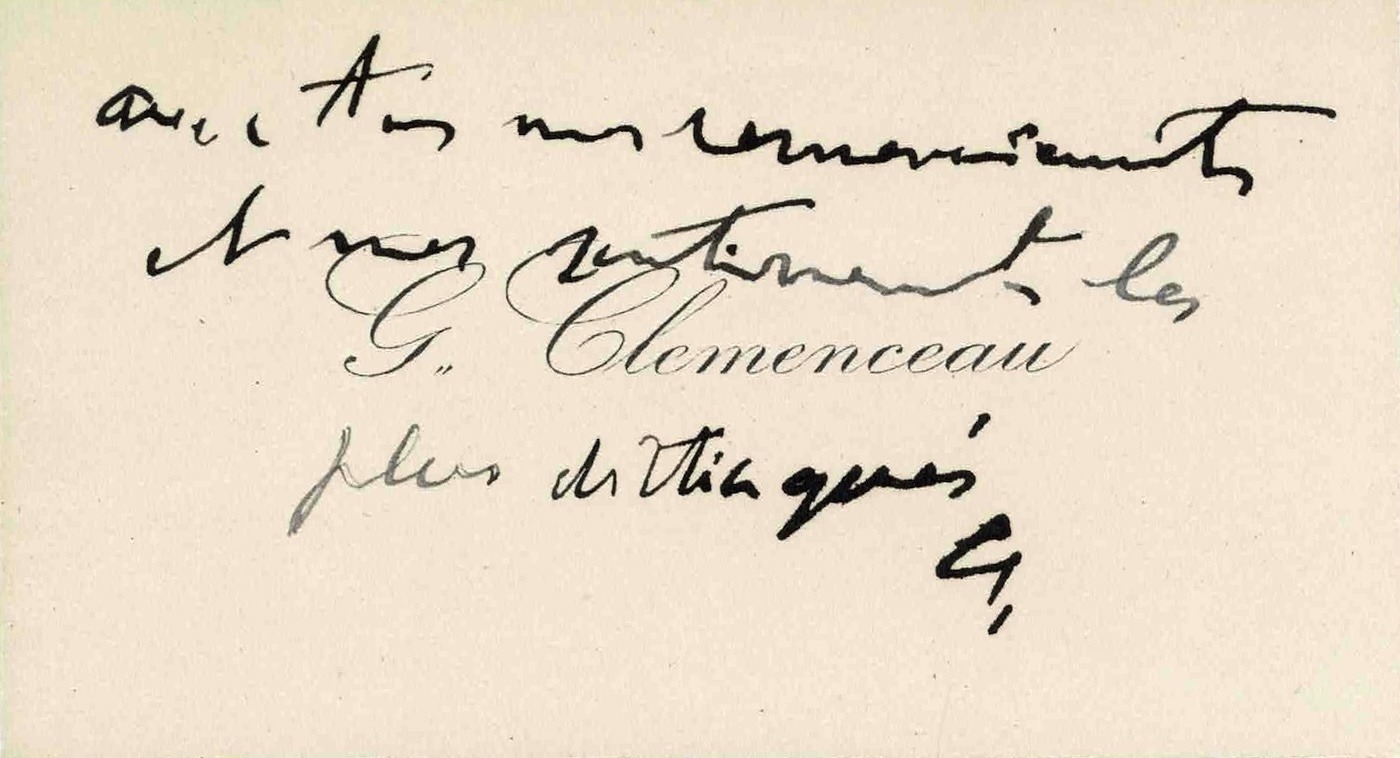 avec tous mes remerciements
et mes sentiments les
G. Clemenceau
plus distingués
G.